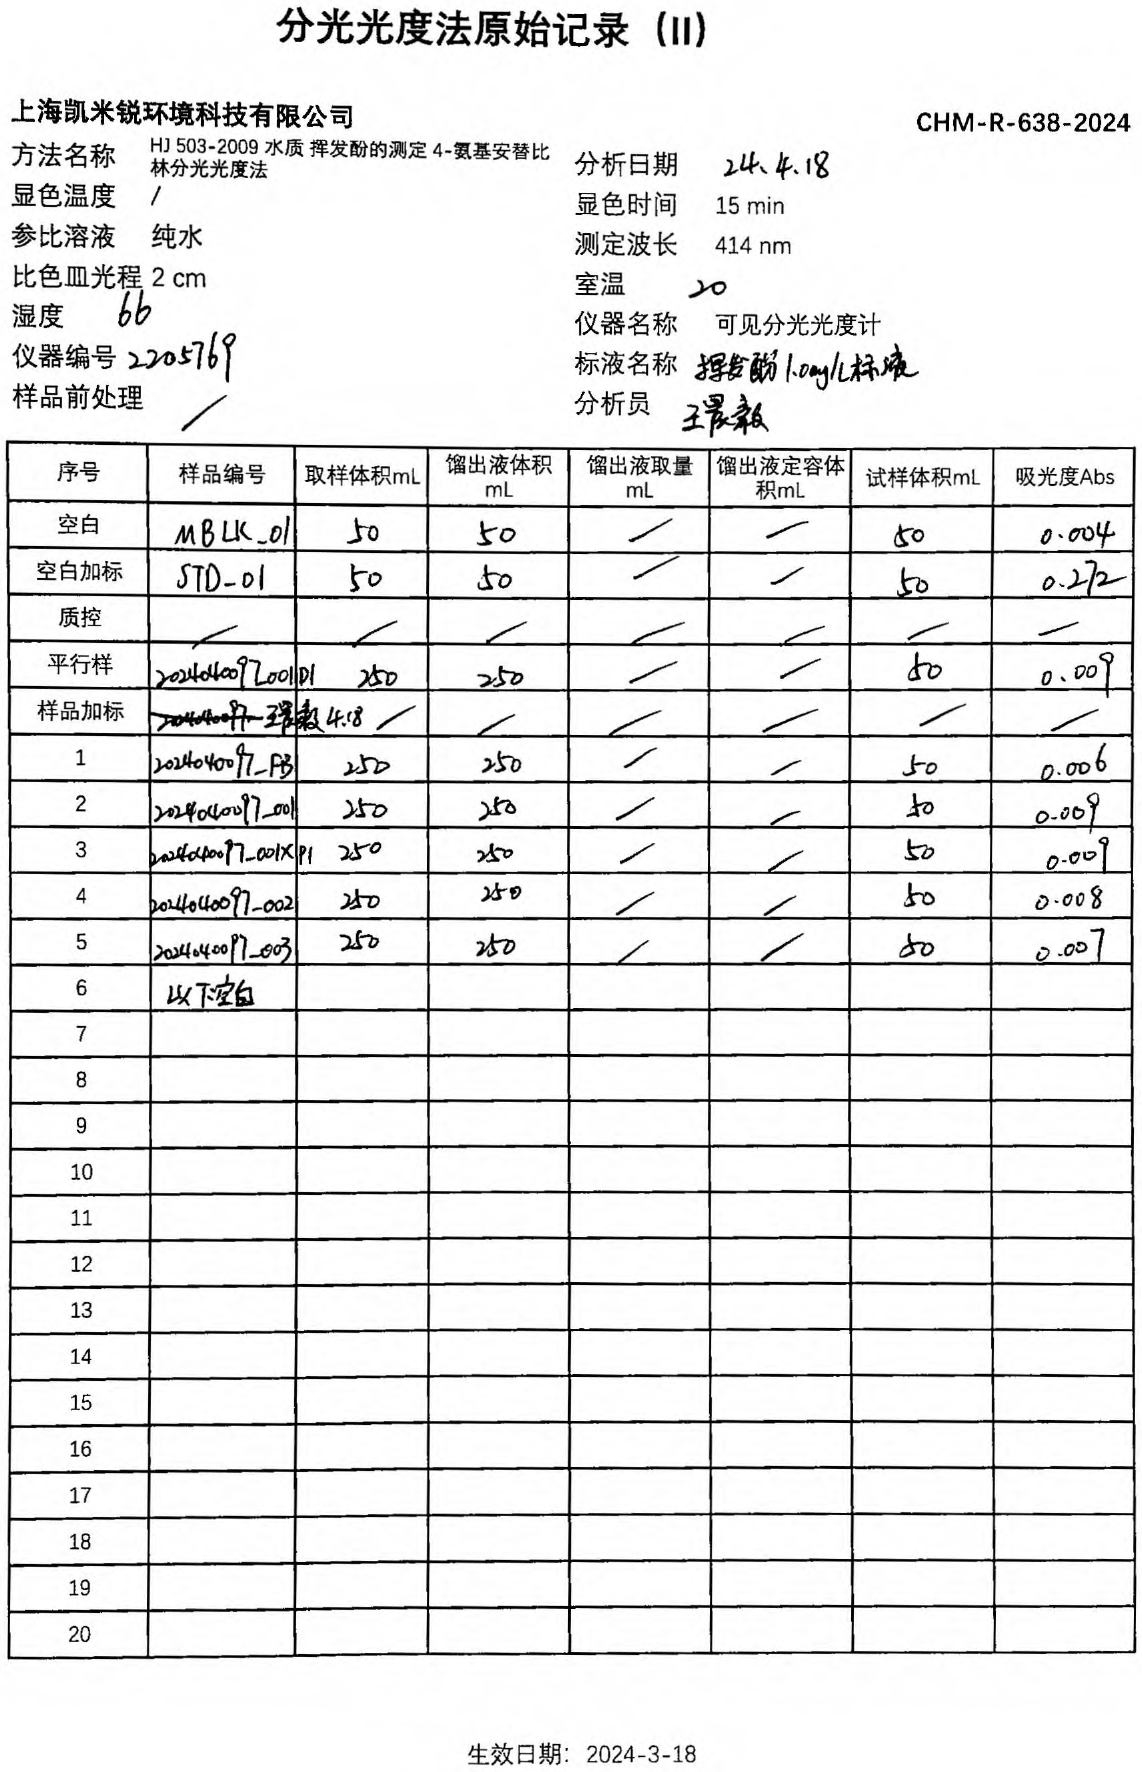 分光光度法原始记录 (II)
上海凯米锐环境科技有限公司
CHM-R-638-2024
方法名称 HJ 503-2009 水质 挥发酚的测定 4-氨基安替比
林分光光度法
分析日期 24.4.18
显色温度 /
显色时间 15 min
参比溶液 纯水
测定波长 414 nm
比色皿光程 2 cm
室温 20
湿度 66
仪器名称 可见分光光度计
仪器编号 2205769
标液名称 挥发酚1.0mg/L标液
样品前处理 /
分析员 王晨毅
序号 样品编号 取样体积mL 馏出液体积mL 馏出液取量mL 馏出液定容体积mL 试样体积mL 吸光度Abs
空白 MBLK_01 50 50 / / 50 0.004
空白加标 STD-01 50 50 / / 50 0.272
质控 / / / / / / /
平行样 2024040097_001D1 250 250 / / 50 0.009
样品加标 2024040097 王晨毅 4.18 / / / / / /
1 2024040097_FB 250 250 / / 50 0.006
2 2024040097_001 250 250 / / 50 0.009
3 2024040097_001XP1 250 250 / / 50 0.009
4 2024040097_002 250 250 / / 50 0.008
5 2024040097_003 250 250 / / 50 0.007
6 以下空白
7
8
9
10
11
12
13
14
15
16
17
18
19
20
生效日期：2024-3-18